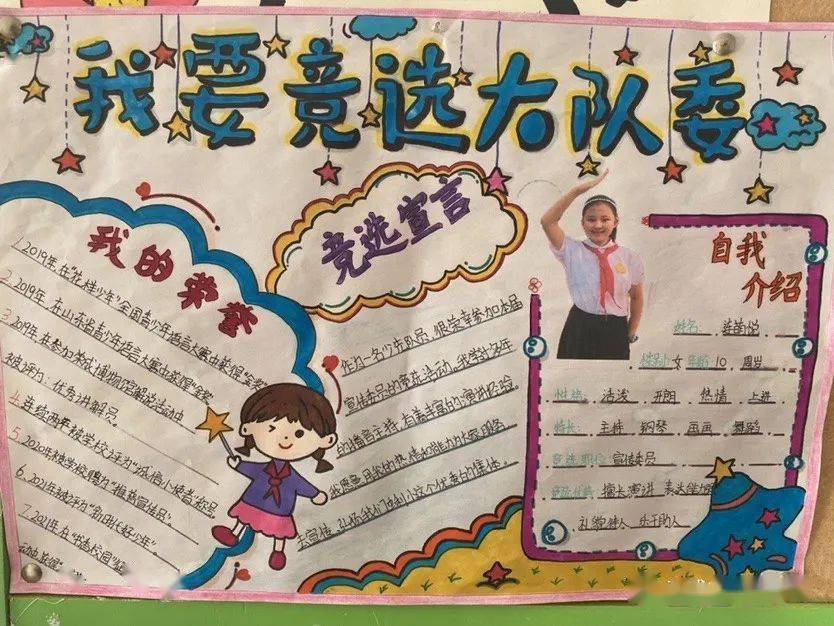 我要竞选大队委
我的荣誉
1. 2019年在"花桂少年"全国青少年语言大赛中获得"金奖"
2. 2019年 东山东省青少年语言大赛中获得"金奖"
3. 2019年在参加美式博物馆解说活动中
被评为：优秀讲解员。
4. 连续两年被学校评为"诚信小使者"
5. 2020年被学校聘为"推普宣传员"。
6. 2021年被评为"新时代好少年"。
7. 2021年在"书香校园"
竞选宣言
作为一名少先队员，很荣幸参加本届
宣传委员的竞选活动。我学过多年
的播音主持，有着丰富的演讲经验。
我愿意用我的热情和能力为大家服务
自我
介绍
姓名：
性别：女 年龄：10 周岁
性格：活泼 开朗 热情 上进
特长：主持 钢琴 画画 舞蹈
竞选职位：宣传委员
竞选优势：擅长演讲 表达能力
礼貌待人 乐于助人